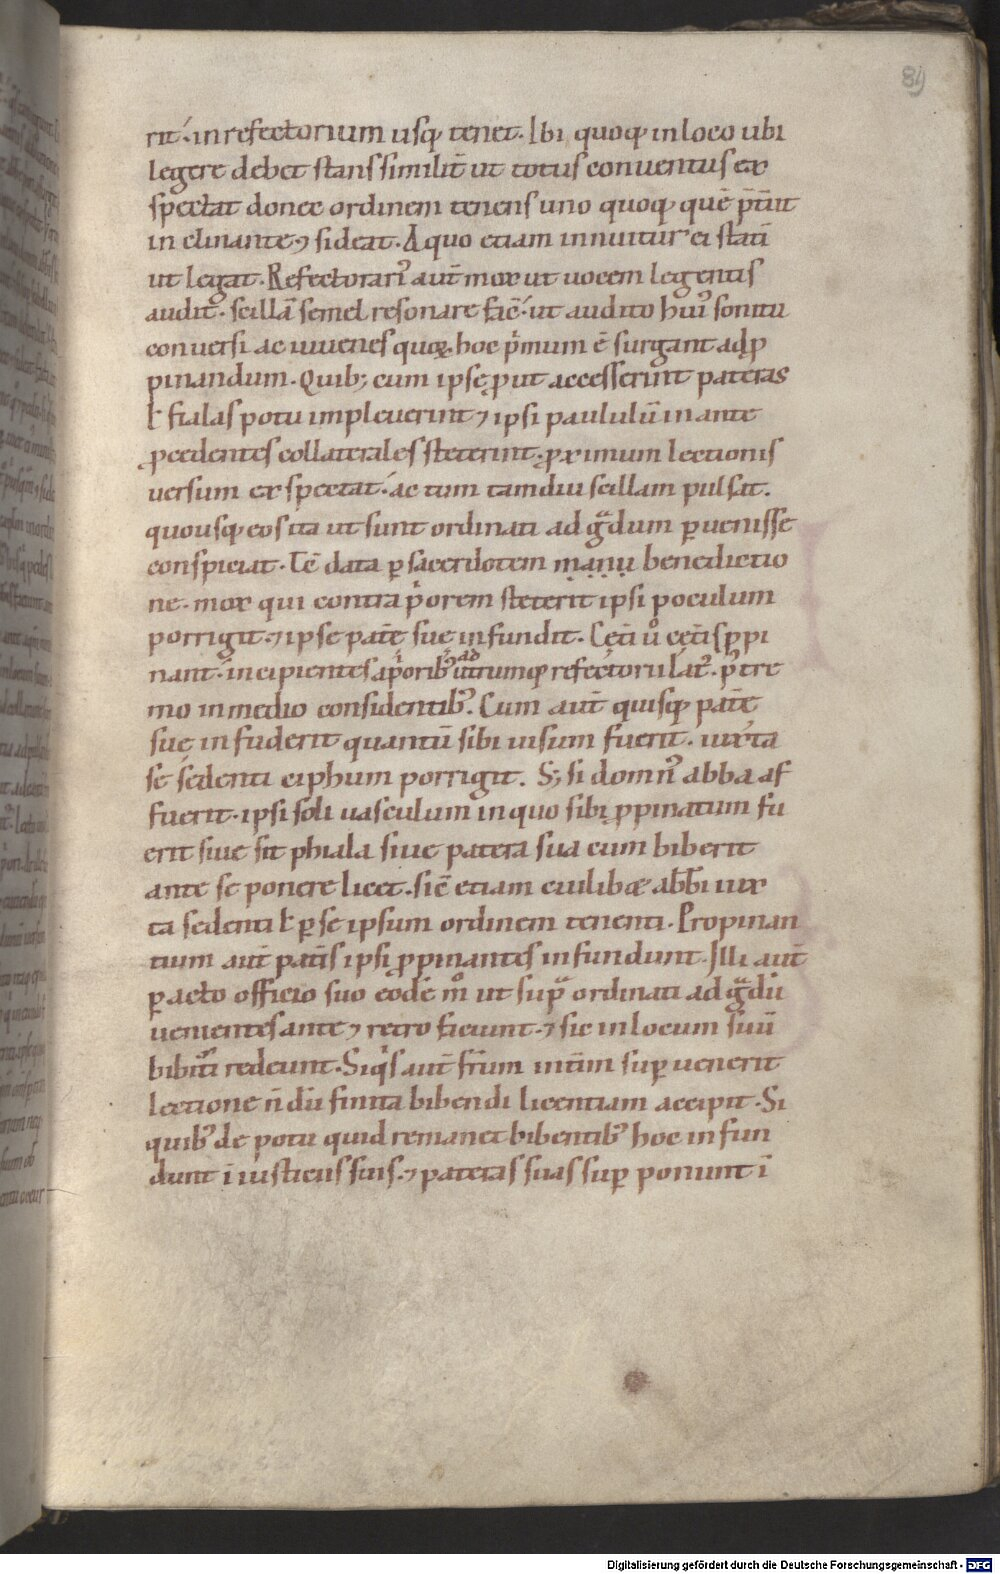 89
rit· in refectorium usq; tenet. Ibi quoq; in loco ubi
legere debet stans similit̄ ut totus conuentus ex
spectat donec ordinem tenens uno quoq; quē p̄t̄iit
inclinante ⁊ sideat. A quo etiam innuitur ei stati͂
ut legat. Refectorari᾿ aut̄ mox ut uocem legentis
audit· scillā semel resonare fac̄· ut audito hui᾿ sonitu
conuersi ac iuuenes quoꝝ hoc p̄mum ē surgant ad ꝓ
pinandum. Quib; cum ipsę ꝓut accesserint pateras
ł fialas potu impleuerint ⁊ ipsi paululū in ante
ꝓcedentes collaterales steterint· ꝓximum lectionis
uersum exspectat· ac tum tamdiu scillam pulsat.
quousq; eos ita ut sunt ordinati ad g̃dum ꝑuenisse
conspiciat. Tc̄ data ꝑ sacerdotem manu benedictio
ne· mox qui contra p̄orem steterit ipsi poculum
porrigit· ⁊ ipse pat̄ę suę infundit. Cęt̄i u᾿o cęt̄is ꝓpi
nant· incipientes a p̄orib᾿ ad utrumq; refectorii lat᾿. p᾿tre
mo in medio considentib᾿. Cum aut̄ quisq; pat̄ę
suę infuderit quantū sibi uisum fuerit· iuxta
se sedenti ciphum porrigit. S; si domn᾿ abba af
fuerit· ipsi soli uasculum in quo sibi ꝓpinatum fu
erit siue sit phiala siue patera sua cum biberit
ante se ponere licet· sic̄ etiam cuilibæ abb̄i iux
ta sedenti ł ꝑ se ipsum ordinem tenenti. Propinan
tium aut̄ pat̄is ipsi ꝓpinantes infundunt. Illi aut̄
ꝑacto officio suo eodē m᾿o ut sup̃ ordinati ad g̃dū
uenientes ante ⁊ retro faciunt· ⁊ sic in locum suū
bibit᾿i redeunt. Siq's aut̄ fr̄um int̄im suꝑuenerit
lectione n̄dū finita bibendi licentiam accipit. Si
quib᾿ de potu quid remanet bibentib᾿ hoc infun
dunt ī iusticiis suis· ⁊ pateras suas suꝑponunt ī
Digitalisierung gefördert durch die Deutsche Forschungsgemeinschaft - DFG